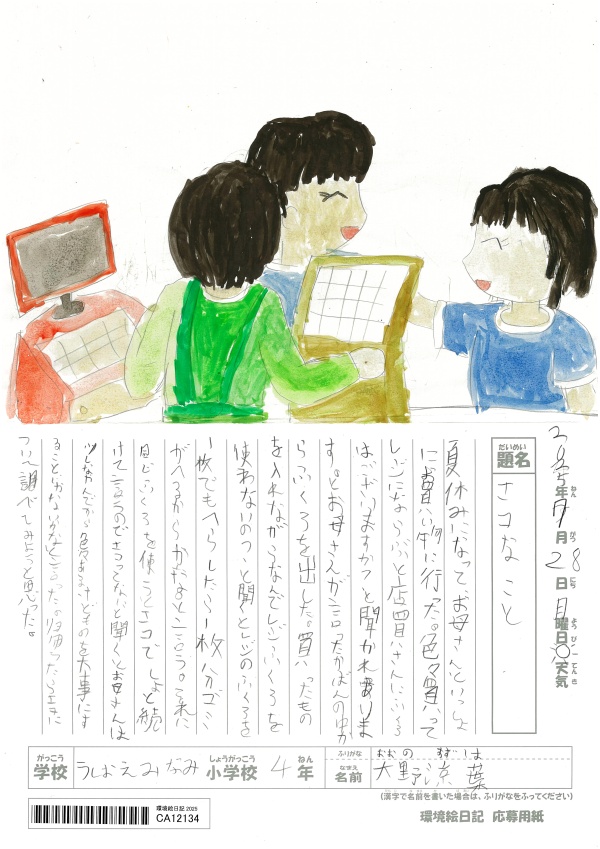 2025年7月28日月曜日 天気
題名 だいめい
エコなこと
夏休みになって、お母さんといっしょ
に買い物に行った。色々買って
レジにならぶと店員さんに「ふくろ
はございますか?」と聞かれ「ありま
す。」とお母さんが言ったかばんの中か
らふくろを出した。買ったもの
を入れながら「なんでレジぶくろを
使わないの?」と聞くと「レジのふくろを
1枚でもへらしたら1枚分ゴミ
がへるからかな」と言う。「それに
同じふくろを使うとエコでしょ」と続
けて言うので「エコってなに」と聞くとお母さんは
少しなやんでから「色々あるけどものを大事にす
ることかな」と言った。帰ったらエコに
ついて調べてみようと思った。
がっこう 学校 うしおえみなみ しょうがっこう 小学校 4 ねん 年
ふりがな おおの すずは
なまえ 名前 大野涼葉
(漢字で名前を書いた場合は、ふりがなをふってください)
環境絵日記 2025
CA12134
環境絵日記 応募用紙